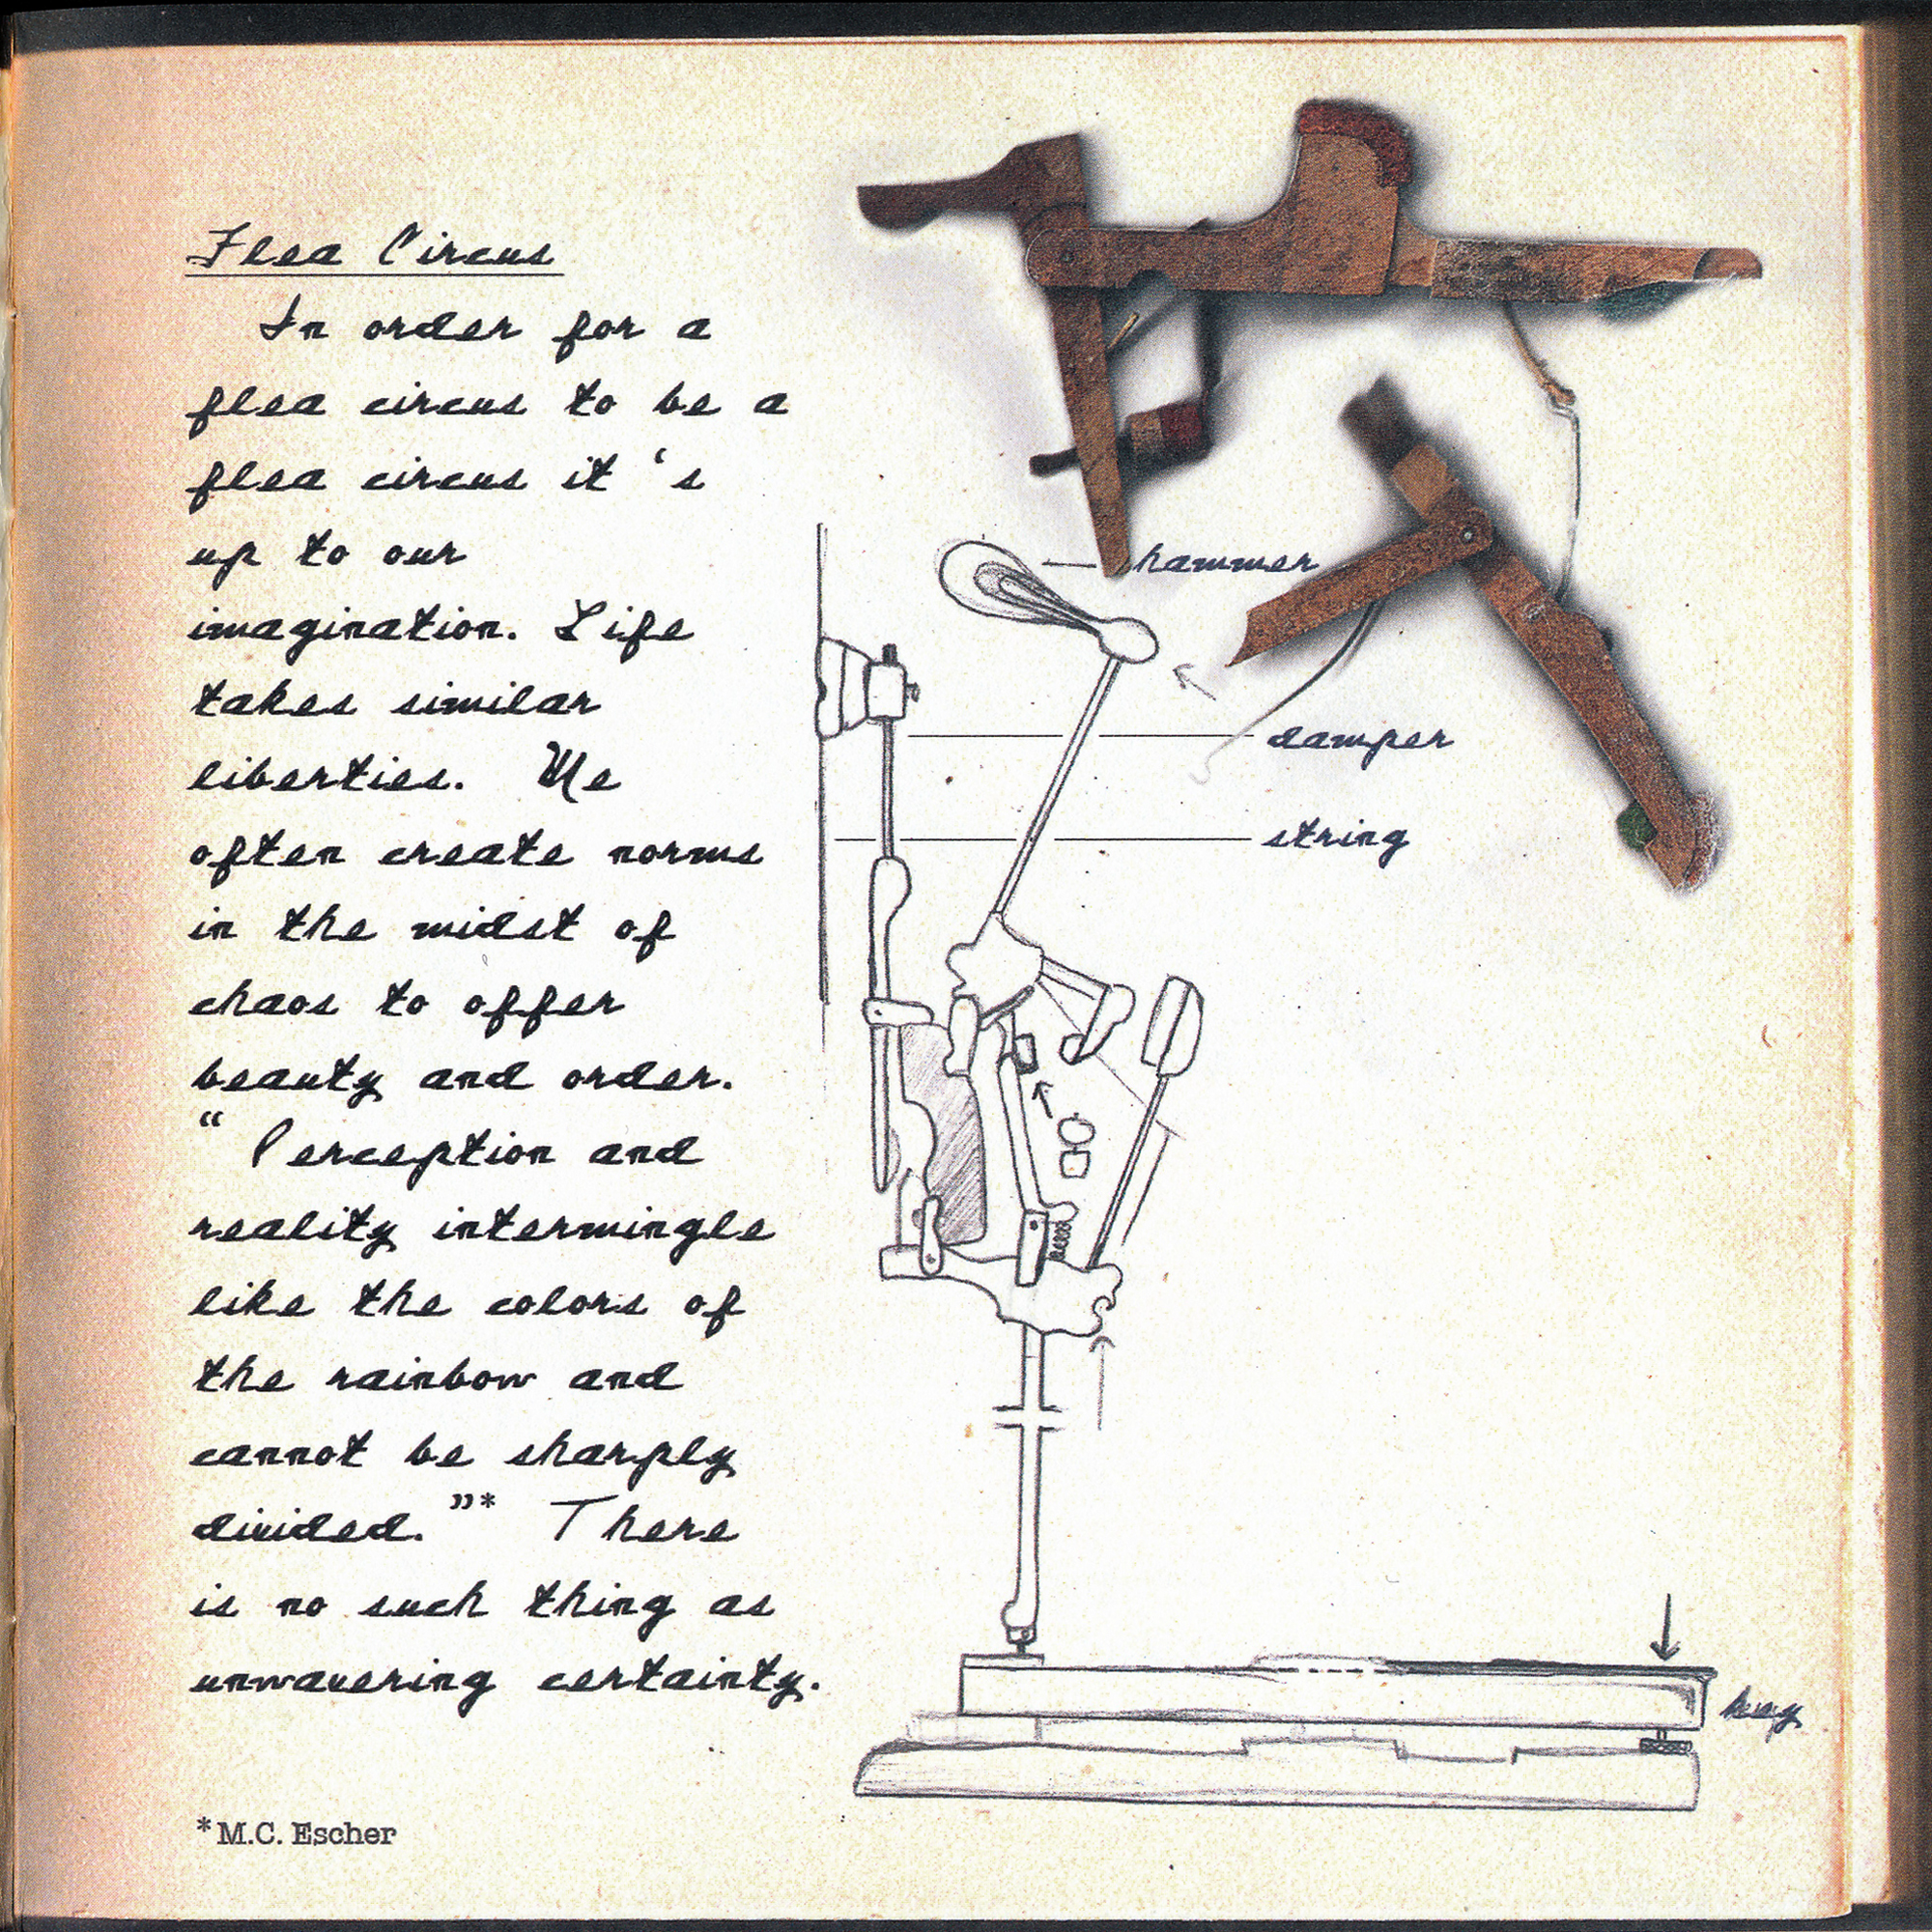 Flea Circus
In order for a
flea circus to be a
flea circus it's
up to our
imagination. Life
takes similar
liberties. We
often create norms
in the midst of
chaos to offer
beauty and order.
"Perception and
reality intermingle
like the colors of
the rainbow and
cannot be sharply
divided."* There
is no such thing as
unwavering certainty.
*M.C. Escher
hammer
damper
string
key